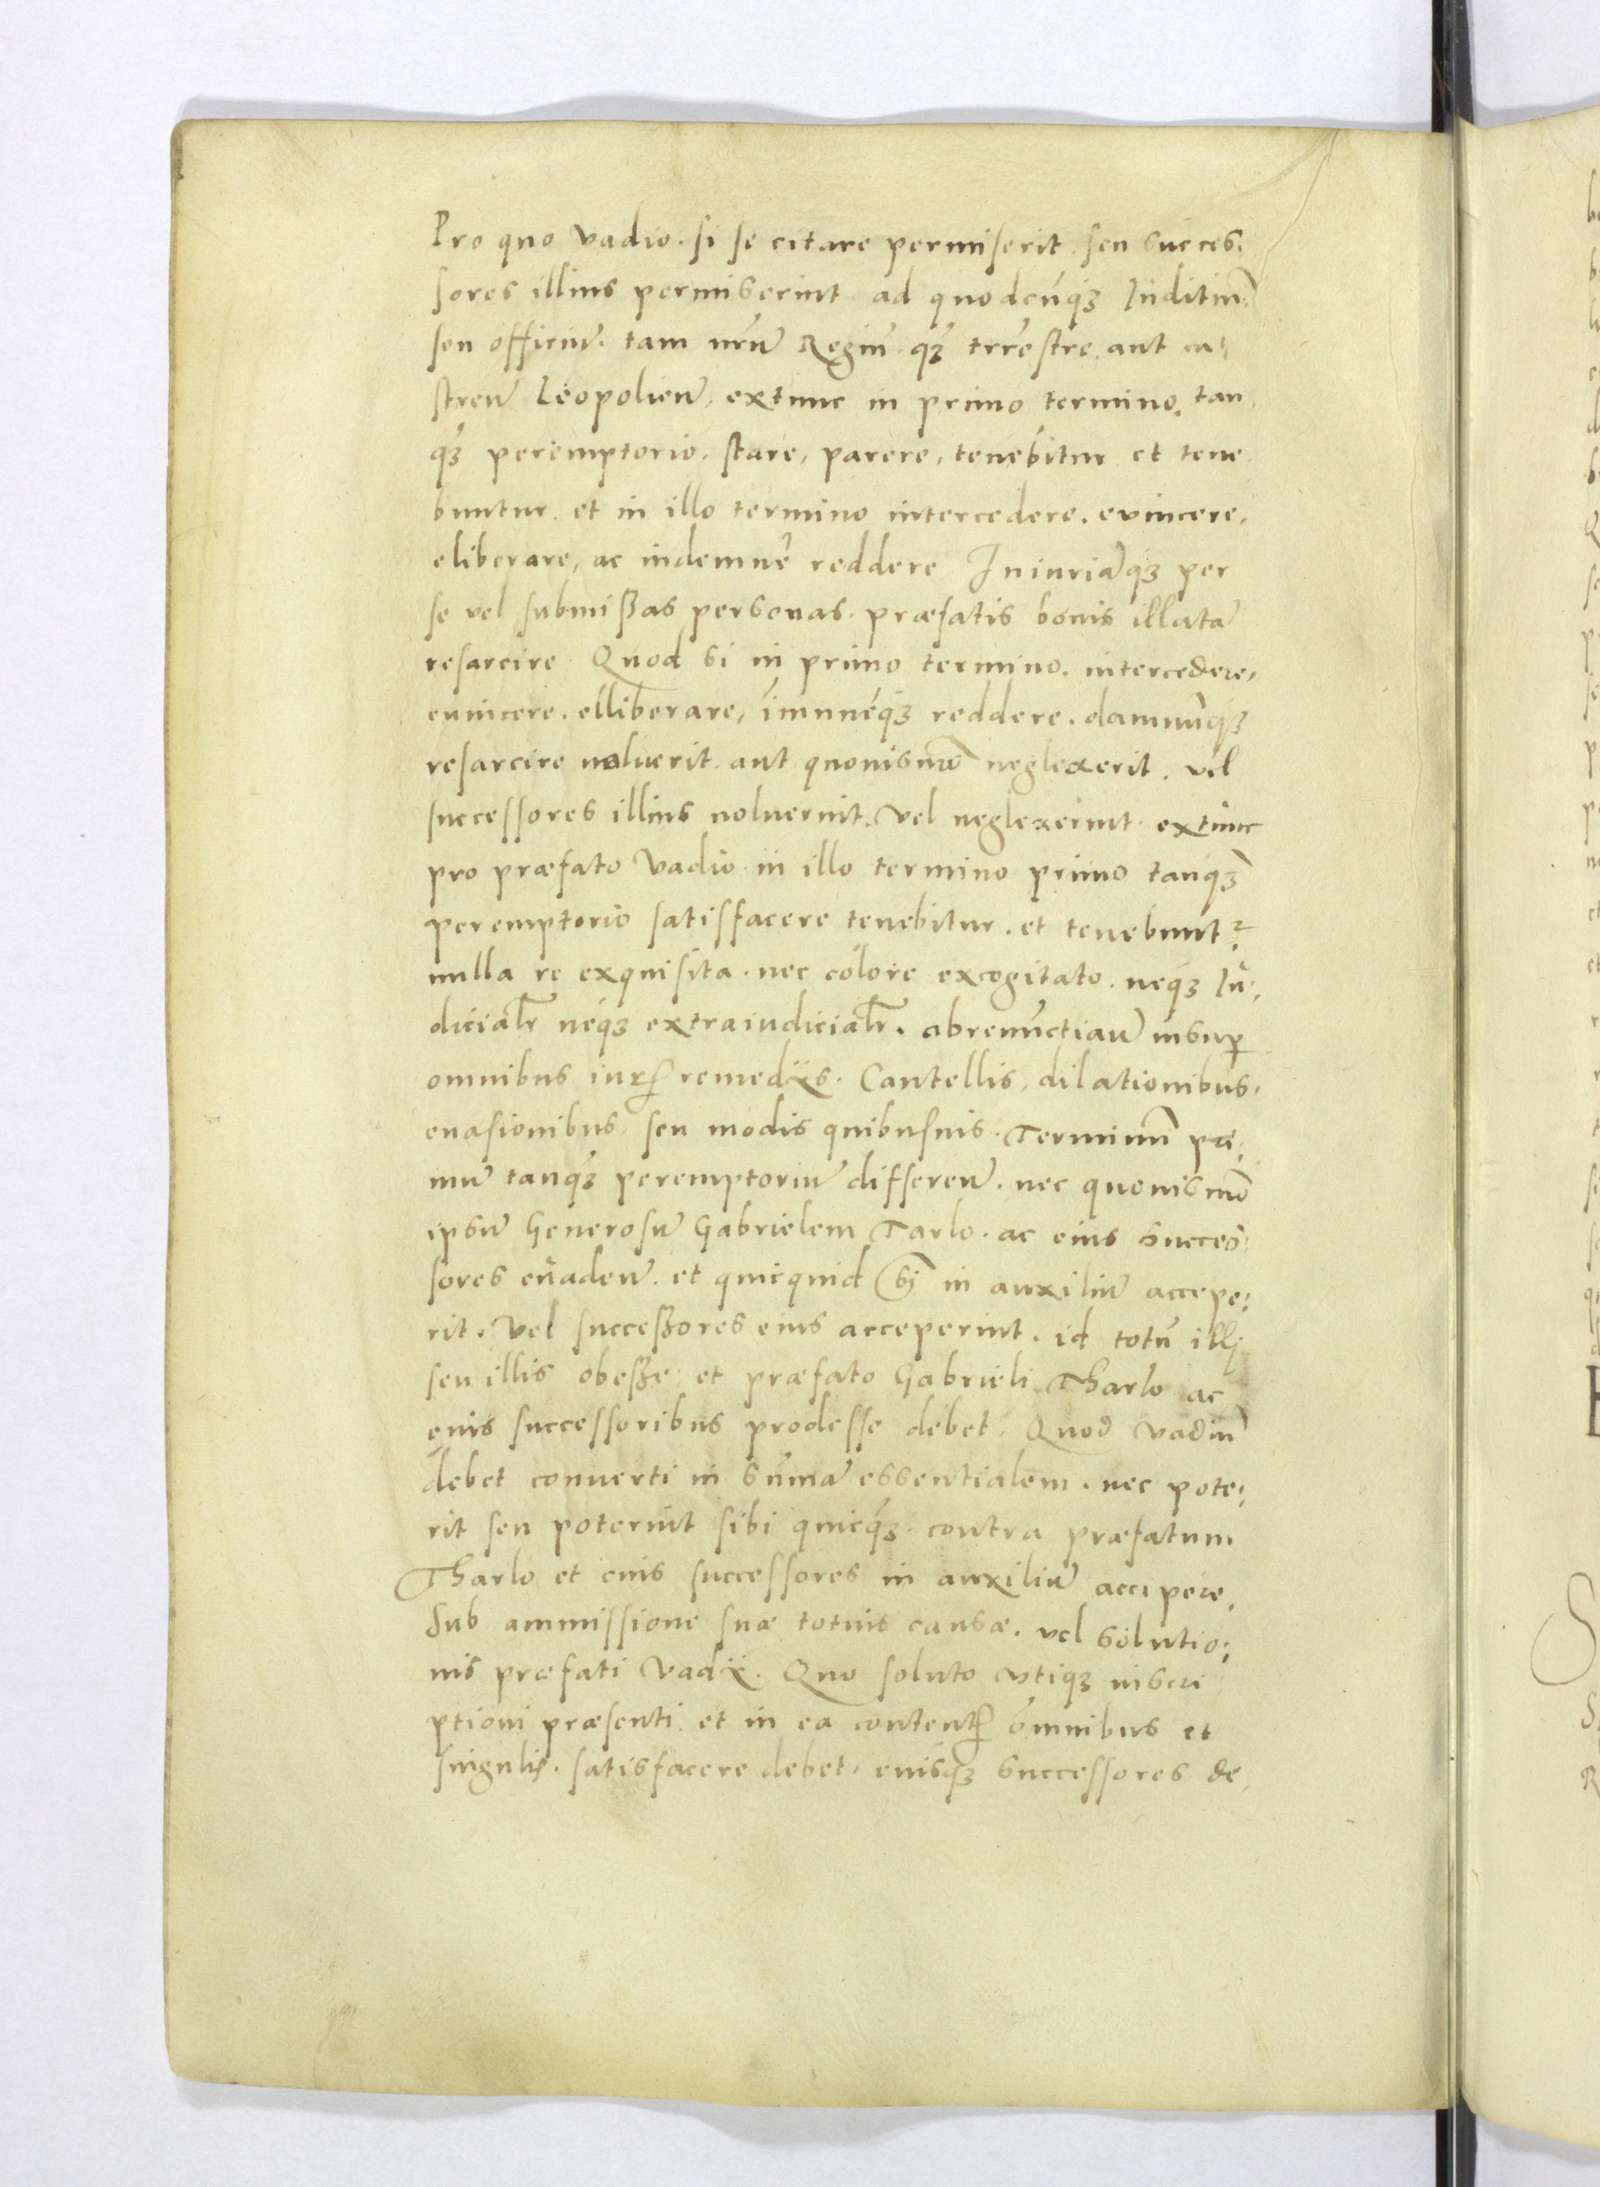 Pro quo vadio. si se citare permiserit seu succes:
sores illius permiserint ad quodcunq3 Iuditiũ
seu officiũ. tam nr̃ũ Regiũ q̃3 trrestre aut ca:
streñ Leopolieñ, extunc in primo termino, tan
q̃3 peremptorio. stare, parere, tenebitur et tene
buntur et in illo termino intercedere. evincere,
eliberare, ac indemnẽ reddere Iniuriãq3 per
se vel submißas personas. præfatis bonis illatã
resarcire Quod si in primo termino. intercedere,
euincere. elliberare, imunẽq3 reddere. damnũq3
resarcire noluerit aut quouismõ neglexerit. vel
successores illius noluerint. vel neglexerint extunc
pro præfato Vadio in illo termino primo tanq̃3
peremptorio satisfacere tenebitur. et tenebunt2
nulla re exquisita. nec colore excogitato. neq3 Iu:
diciałr neq3 extraiudiciałr. abrenũctiañ insup
omnibus iurꝭ remedijs. Cautellis, dilationibus.
euasionibus seu modis quibusuis. Terminũ pri:
mũ tanq̃3 peremptoriũ differeñ. nec quouismõ
ipsũ Generosũ Gabrielem Tarlo. ac eius succes:
sores euadeñ. et quicquid sj in auxiliũ accepe:
rit. Vel succeßores eius acceperint. id totũ illj
seu illis obeße: et præfato Gabrieli Tharlo ac
euis successoribus prodesse debet. Quod vadiũ
debet conuerti in sũmã essentialem. nec pote:
rit seu poterint sibi quicq̃3 contra præfatum
Tharlo et euis successores in auxiliũ accipere.
Sub ammissione suæ totuis causæ. vel solutio:
nis præfati Vadij. Quo soluto vtiq3 inscri
ptioni præsenti et in ea contentꝭ omnibus et
singulis. satisfacere debet. euisq3 successores de: